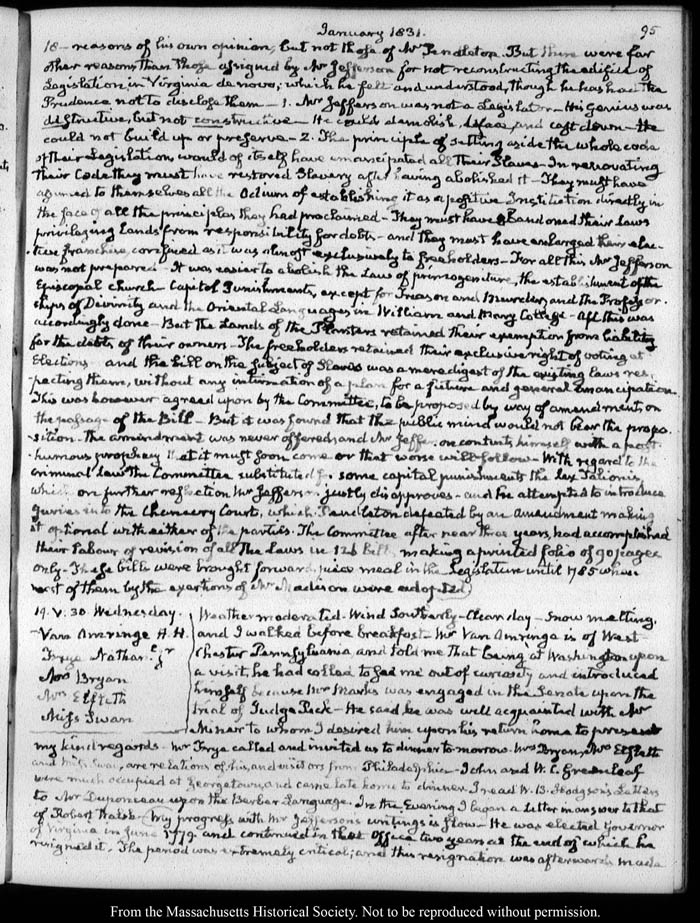 January 1831.
95
18 - reasons of his own opinion, but not those of Mr Pendleton. But there were far
other reasons than those assigned by Mr Jefferson for not reconstructing the edifice of
Legislation in Virginia de novo; which he felt and understood, though he has had the
Prudence not to disclose them - 1. Mr Jefferson was not a Legislator - His Genius was
destructive, but not constructive - He could demolish, deface, and cast down - He
could not build up or preserve - 2. The principle of setting aside the whole code
of their Legislation would of itself have emancipated all their Slaves - In renovating
their Code they must have restored Slavery after having abolished it - They must have
assumed to themselves all the Odium of establishing it as a positive Institution directly in
the face of all the principles they had proclaimed - They must have abandoned their Laws
privileging Lands from responsibility for debts - and they must have enlarged their elec-
tive franchise, confined as it was almost exclusively to freeholders - For all this Mr Jefferson
was not prepared - It was easier to abolish the Law of primogeniture, the establishment of the
Episcopal church - Capital Punishments, except for Treason and Murder, and the Professor-
ships of Divinity and the Oriental Languages in William and Mary College - All this was
accordingly done - But the Lands of the Planters retained their exemption from liability
for the debts of their owners - The freeholders retained their exclusive right of voting at
Elections, and the bill on the subject of Slaves was a mere digest of the existing laws res-
pecting them, without any intimation of a plan for a future and general emancipation.
This was however agreed upon by the Committee, to be proposed by way of amendment, on
the passage of the Bill - But it was found that the public mind would not bear the propo-
sition - The amendment was never offered, and Mr Jefferson contents himself with a post-
humous prophecy that it must soon come or that worse will follow - With regard to the
criminal law the Committee substituted for some capital punishments the Lex Talionis,
which on further reflection Mr Jefferson justly disapproves - and he attempted to introduce
juries into the Chancery Court, which Pendleton defeated by an amendment making
it optional with either of the parties. The Committee after near three years, had accomplished
their labour of revision of all the Laws in 126 bills, making a printed folio of 90 pages
only - These bills were brought forward, piece meal in the Legislature until 1785 when
most of them by the exertions of Mr Madison were adopted.
19. V. 30. Wednesday.
Van Amringe H. H.
Frye Nathanl. Jr
Mrs Bryan
Mrs
Miss Swan
Weather moderated - Wind Southerly - Clear day - Snow melting.
and I walked before breakfast - Mr Van Amringe is of West-
chester Pennsylvania and told me that being at Washington upon
a visit, he had called to see me out of curiosity and introduced
himself because Mr Marks was engaged in the Senate upon the
trial of Judge Peck - He said he was well acquainted with Mr
Miner to whom I desired him upon his return home to present
my kind regards. Mr Frye called and invited us to dinner to-morrow. Mrs Bryan, Mrs
and Miss Swan, are relations of his, and visitors from Philadelphia - John and W. C. Greenleaf
were much occupied at Georgetown, and came late home to dinner. I read W. B. Hodgson's Letters
to Mr Duponceau upon the Berber Language. In the Evening I began a Letter in answer to that
of Robert Walsh. My progress with Mr Jefferson's writings is slow - He was elected Governor
of Virginia in June 1779 and continued in that Office two years at the end of which he
resigned it. The period was extremely critical; and this resignation was afterwards made
From the Massachusetts Historical Society. Not to be reproduced without permission.